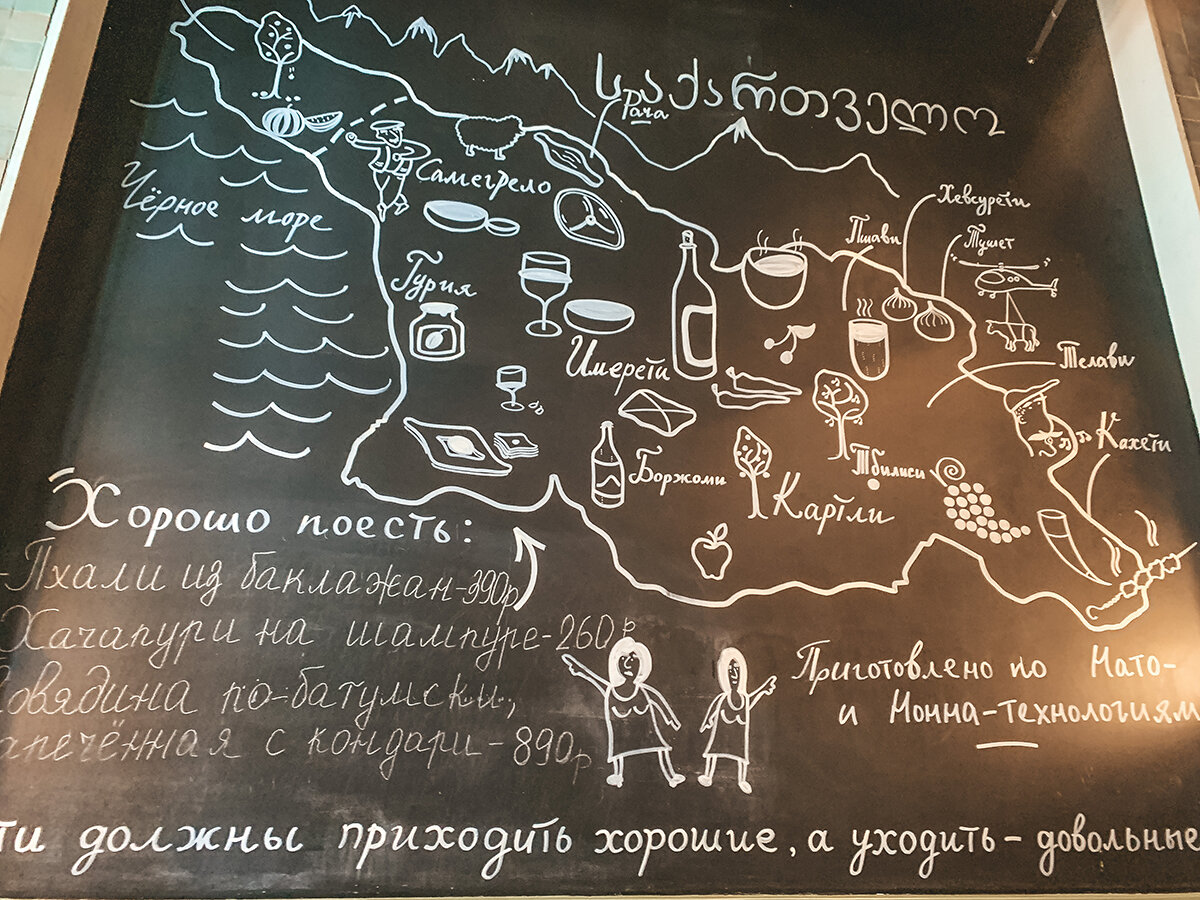 საქართველო
Рача
Самегрело
Чёрное море
Хевсурети
Пшави
Тушет
Гурия
Телави
Имерети
Кахети
Боржоми
Тбилиси
Картли
Хорошо поесть:
-Пхали из баклажан-390р
Хачапури на шампуре-260р
овядина по-батумски,
апечённая с кондари-890р
Приготовлено по Мато-
и Нонна-технологиям
ти должны приходить хорошие, а уходить - довольные